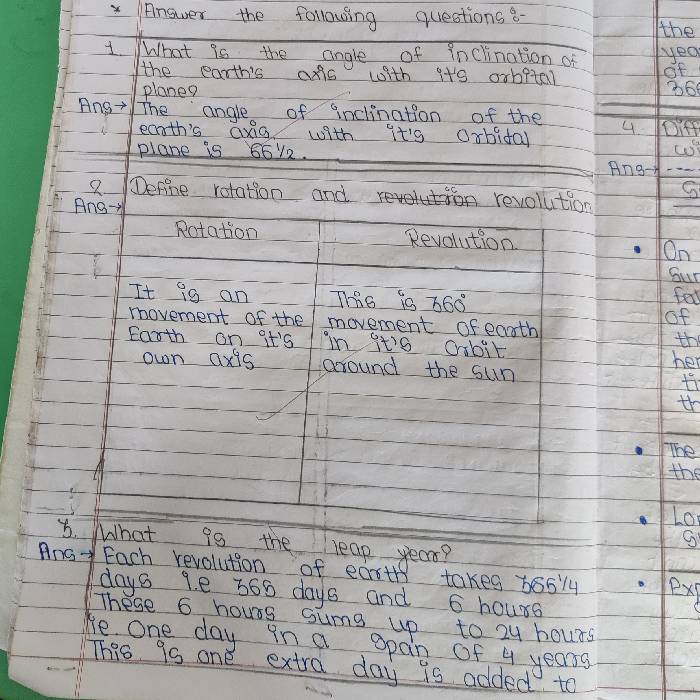 * Answer the following questions :-
1. What is the angle of inclination of
the earth's axis with it's orbital
plane?
Ans→ The angle of inclination of the
earth's axis with it's Orbital
plane is 66 1/2.
2 Define rotation and revolution revolution
Ans→
Rotation Revolution
It is an This is 360°
movement of the movement of earth
Earth on it's in it's orbit
own axis around the sun
3. What is the leap year?
Ans→ Each revolution of earth takes 365 1/4
days i.e 365 days and 6 hours
These 6 hours sums up to 24 hours
ie. One day in a span of 4 years
This is one extra day is added to
the
yea
of
366
4. Diff
wi
Ans→ ----
S
• On
Sun
of
the
her
ti
th
• The
the
• Lo
S
• Exp